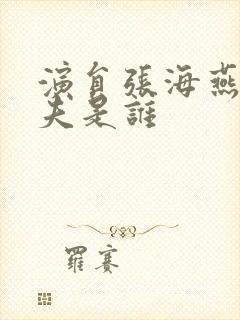 演員張海燕
夫是誰
羅賽